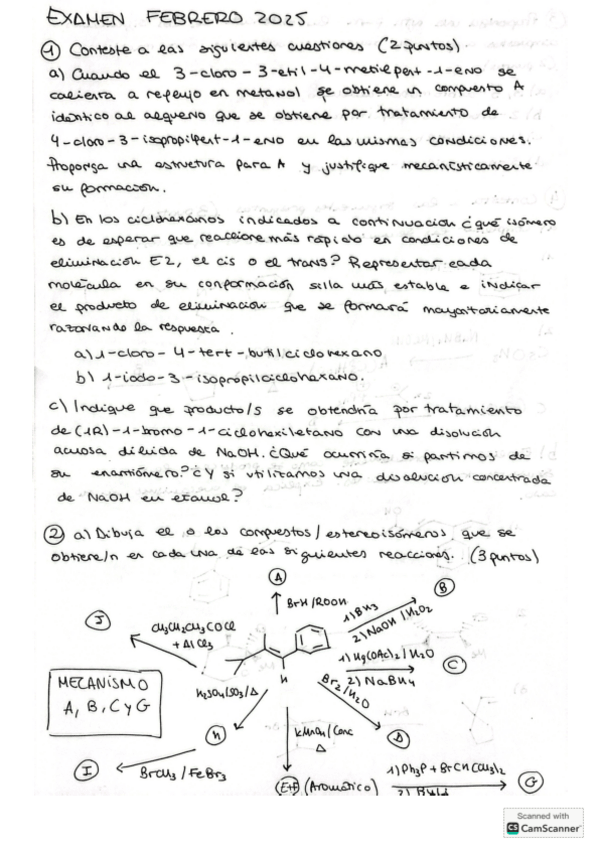 EXAMEN FEBRERO 2025
① Conteste a las siguientes cuestiones (2 puntos)
a) Cuando el 3-cloro-3-etil-4-metilpent-1-eno se
calienta a reflujo en metanol se obtiene un compuesto A
idéntico al alqueno que se obtiene por tratamiento de
4-cloro-3-isopropilpent-1-eno en las mismas condiciones.
Proponga una estructura para A y justifique mecanísticamente
su formación.
b) En los ciclohexanos indicados a continuación ¿qué isómero
es de esperar que reaccione más rápido en condiciones de
eliminación E2, el cis o el trans? Representar cada
molécula en su conformación silla más estable e indicar
el producto de eliminación que se formará mayoritariamente
razonando la respuesta.
a) 1-cloro-4-tert-butilciclohexano
b) 1-iodo-3-isopropilciclohexano.
c) Indique que producto/s se obtendría por tratamiento
de (1R)-1-bromo-1-ciclohexiletano con una disolución
acuosa diluida de NaOH. ¿Qué ocurriría si partimos de
su enantiómero? ¿Y si utilizamos una disolución concentrada
de NaOH en etanol?
② a) Dibuja el o los compuestos/estereoisómeros que se
obtiene/n en cada una de las siguientes reacciones. (3 puntos)
A
BrH/ROOH
B
1) BH3
2) NaOH/H2O2
J
CH3CH2CH2COCl
+ AlCl3
1) Hg(OAc)2/H2O
2) NaBH4
C
H
MECANISMO
A, B, C y G
H2SO4/SO3/Δ
Br2/H2O
H
KMnO4/Conc
Δ
D
I
BrCH3/FeBr3
E+F (Aromático)
1) Ph3P + BrCH(CH3)2
2) BuLi
G
Scanned with
CS CamScanner